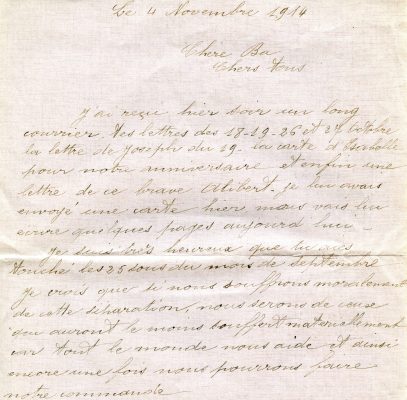 Le 4 Novembre 1914
Chère Ba
Chers tous
J'ai reçu hier soir un long
courrier tes lettres des 18-19-26 et 27 octobre
la lettre de Joseph du 19. la carte d'
pour notre anniversaire et enfin une
lettre de ce brave Alibert. je lui avais
envoyé une carte hier mais vais lui
ecrire quelques pages aujourd hui -
Je suis très heureux que tu aies
touché les 25 sous du mois de septembre
je crois que si nous souffrons moralement
de cette séparation, nous serons de ceux
qui auront le moins souffert materiellement
car tout le monde nous aide et ainsi
encore une fois nous pourrons faire
notre commande